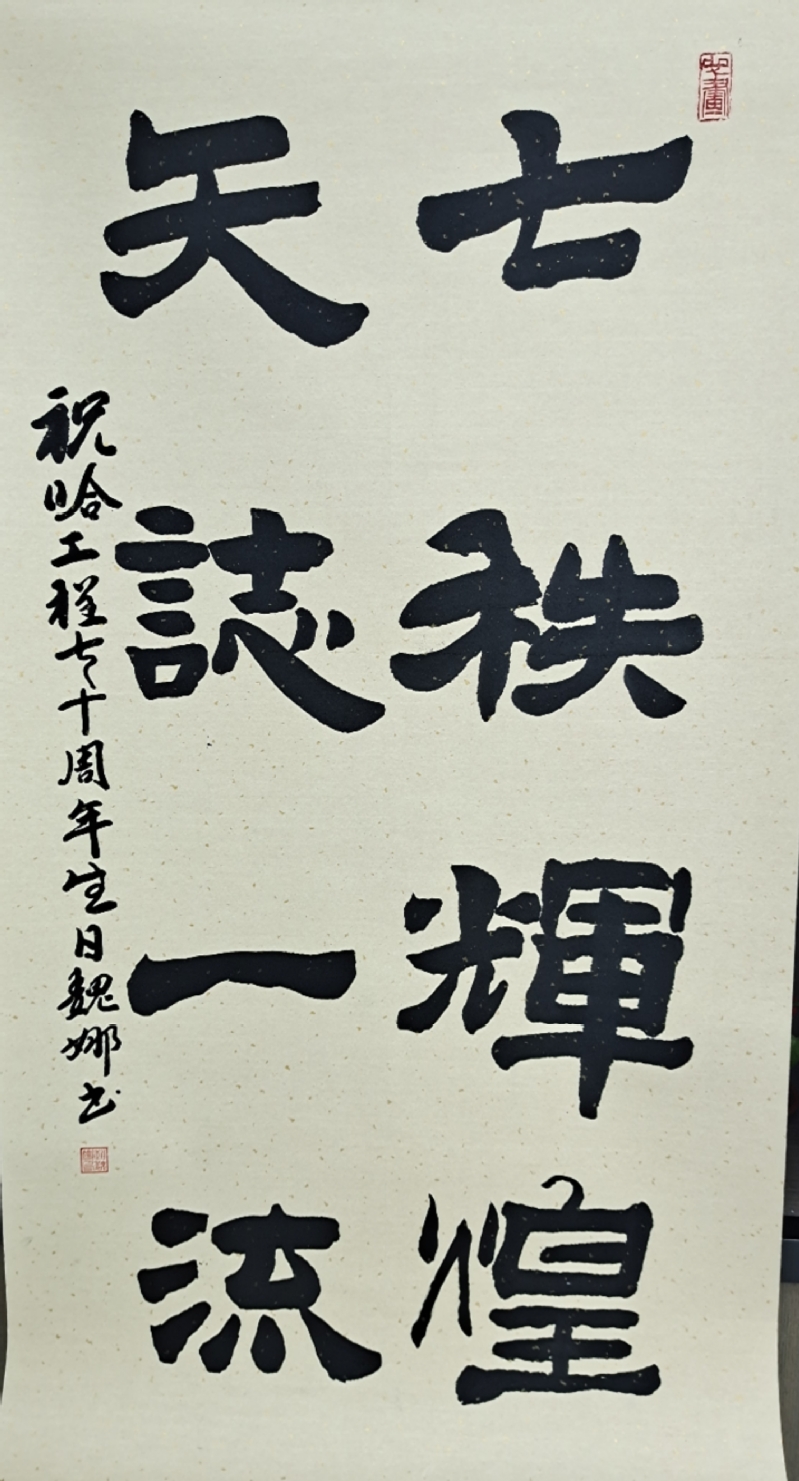 七秩輝煌
矢誌一流
祝哈工程七十周年生日魏娜书